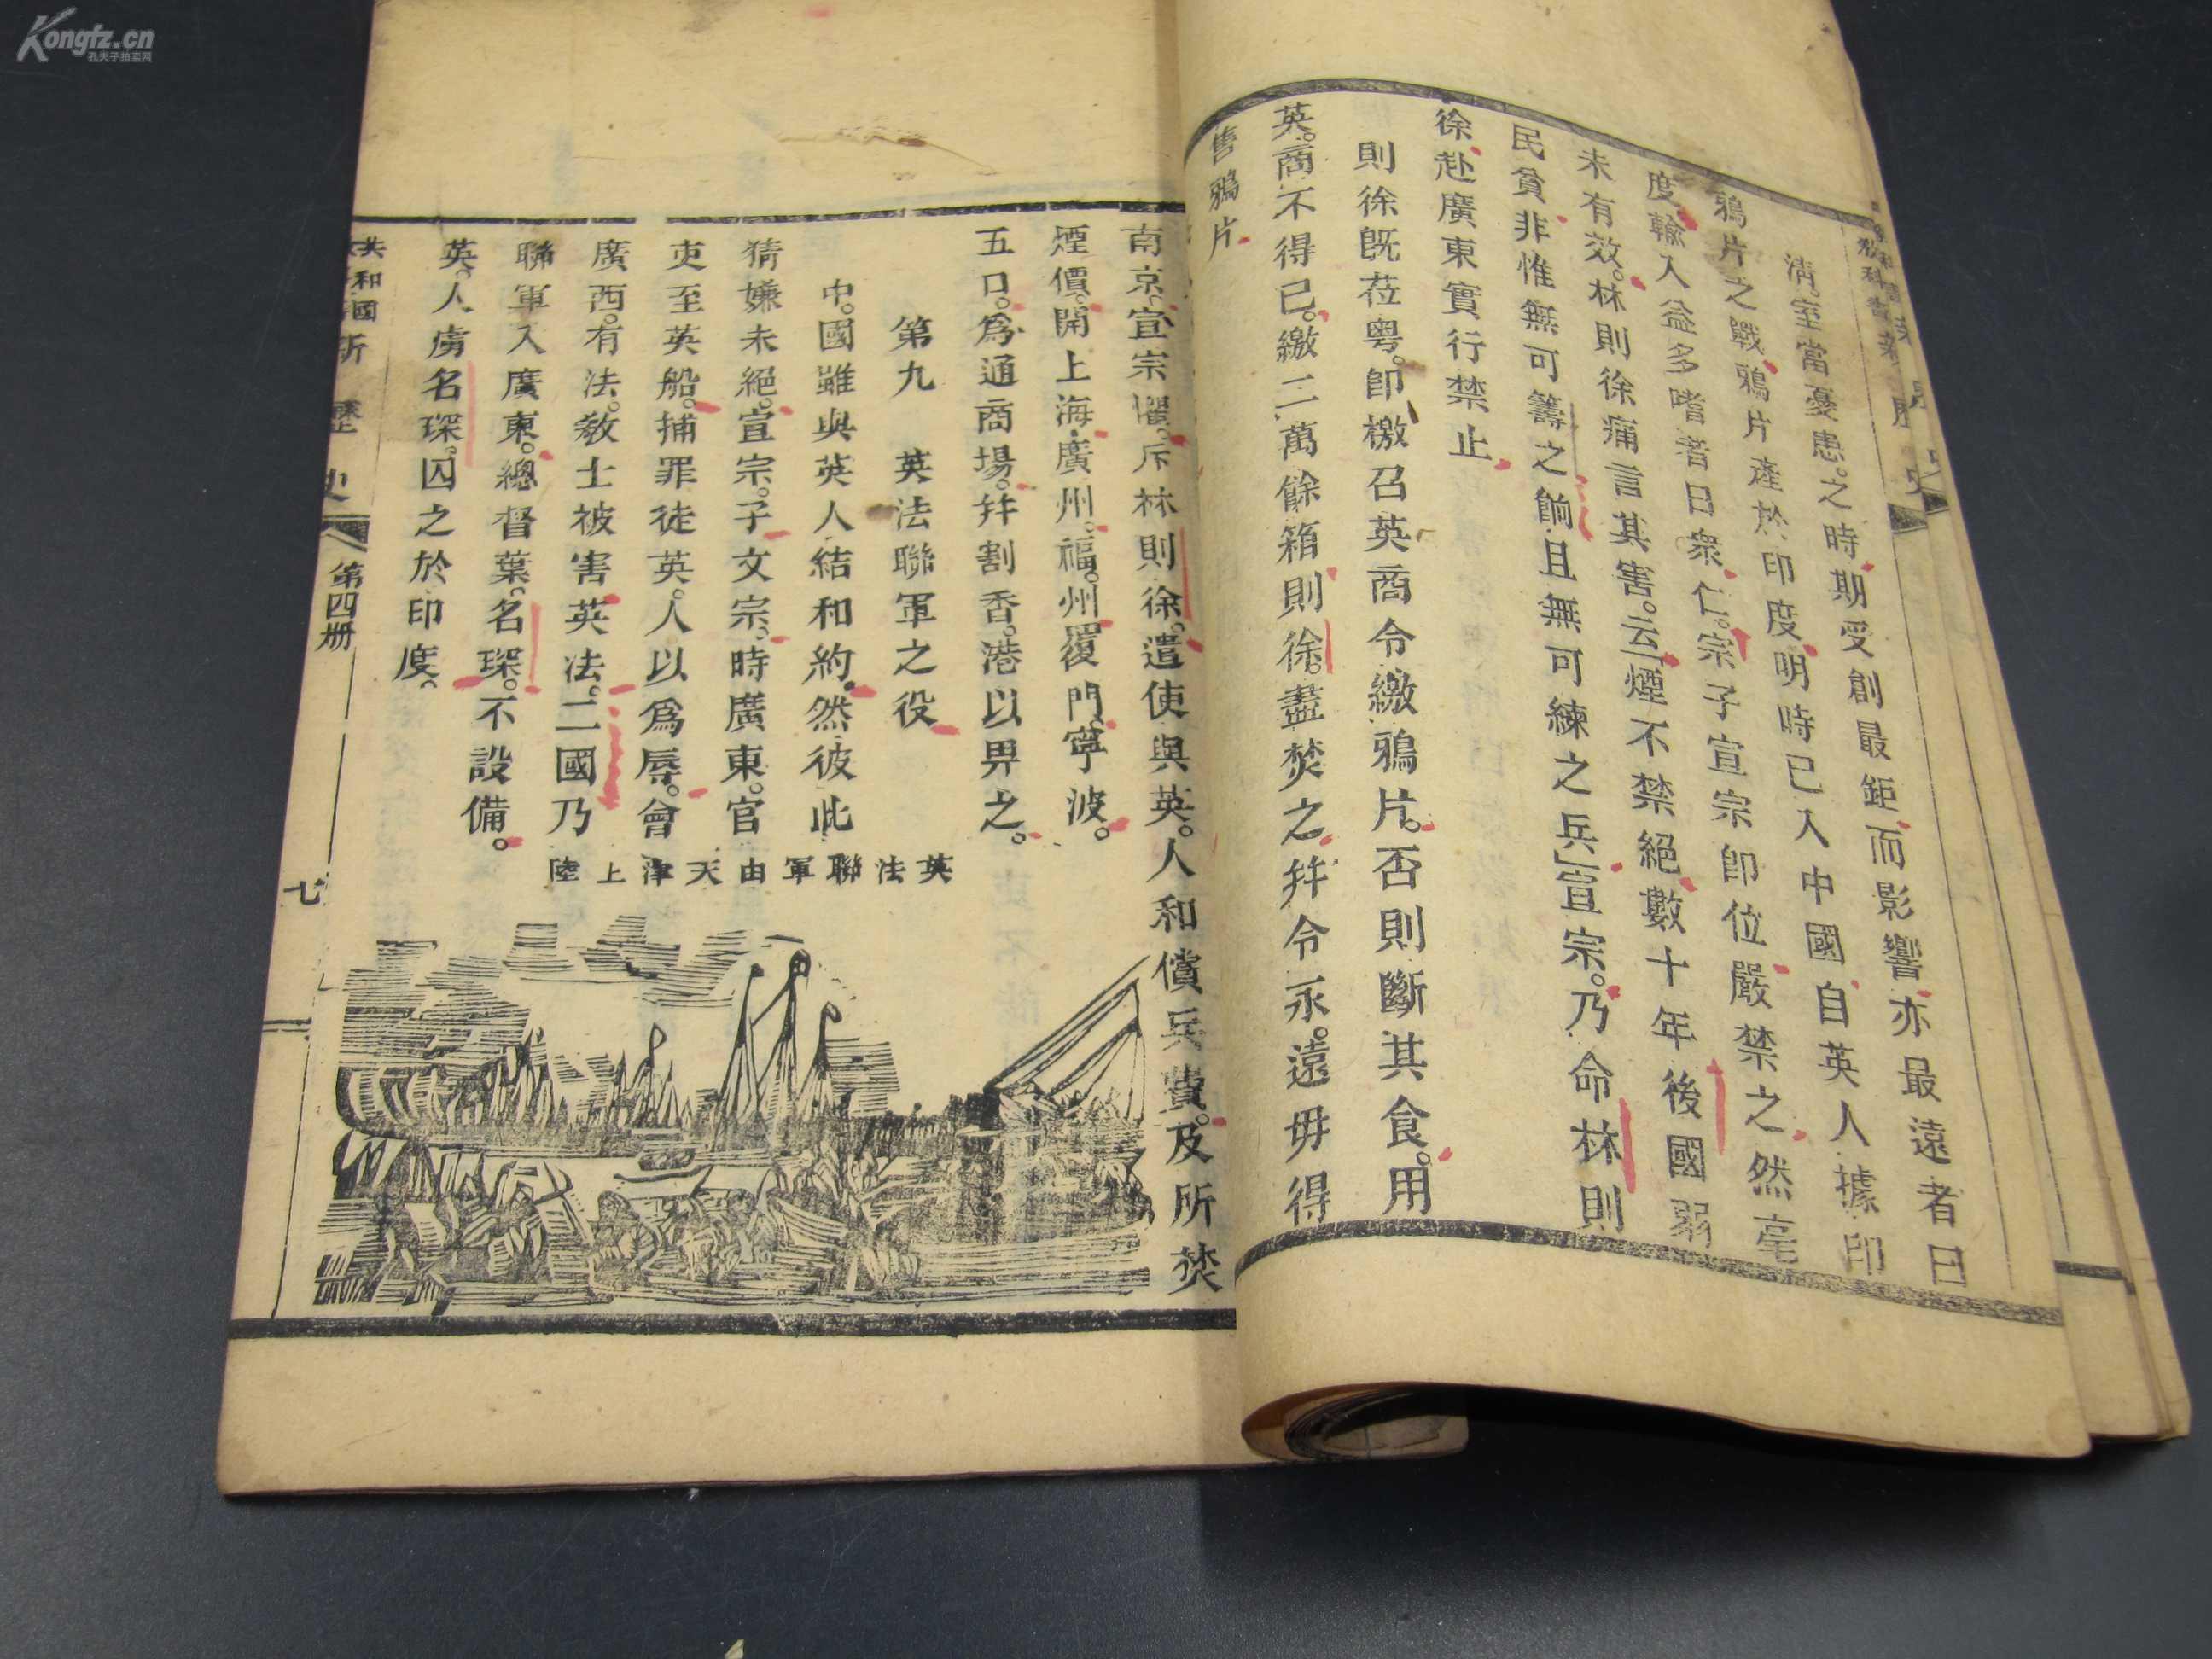 清室當憂患之時期受創最鉅而影響亦最遠者曰
鴉片之戰鴉片產於印度明時已入中國自英人據印
度輸入益多嗜者日衆仁宗子宣宗卽位嚴禁之然毫
未有效林則徐痛言其害云「煙不禁絕數十年後國弱
民貧非惟無可籌之餉且無可練之兵」宣宗乃命林則
徐赴廣東實行禁止
則徐旣莅粵卽檄召英商令繳鴉片否則斷其食用
英商不得已繳二萬餘箱則徐盡焚之幷令永遠毋得
售鴉片
南京宣宗懼斥林則徐遣使與英人和償兵費及所焚
煙價開上海廣州福州廈門寧波
五口爲通商場幷割香港以畀之
第九 英法聯軍之役
中國雖與英人結和約然彼此
猜嫌未絕宣宗子文宗時廣東官
吏至英船捕罪徒英人以爲辱會
廣西有法敎士被害英法二國乃
聯軍入廣東總督葉名琛不設備
英人虜名琛囚之於印度
英法聯軍由天津上陸
共和國
新歷史
第四册
七
Kongfz.cn
孔夫子拍卖网